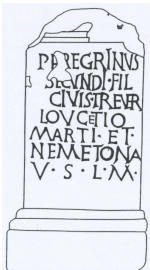 PEREGRINVS
SECVNDI·FIL
CIVIS·TREVER
LOVCETIO
MARTI·ET
NEMETONA
V·S·L·M·